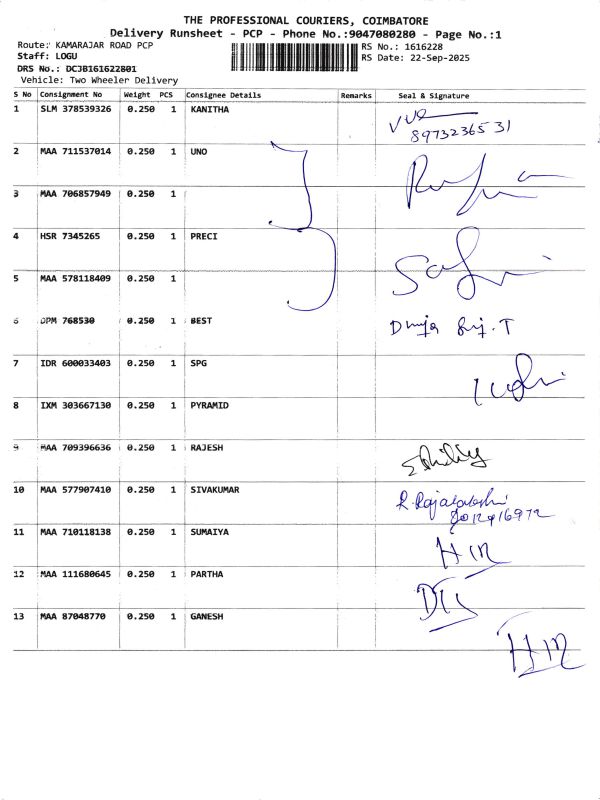 THE PROFESSIONAL COURIERS, COIMBATORE
Delivery Runsheet - PCP - Phone No.:9047080280 - Page No.:1
Route: KAMARAJAR ROAD PCP
RS No.: 1616228
Staff: LOGU
RS Date: 22-Sep-2025
DRS No.: DCJB161622801
Vehicle: Two Wheeler Delivery
S No Consignment No Weight PCS Consignee Details Remarks Seal & Signature
1 SLM 378539326 0.250 1 KANITHA
8973236531
2 MAA 711537014 0.250 1 UNO
3 MAA 706857949 0.250 1
4 HSR 7345265 0.250 1 PRECI
5 MAA 578118409 0.250 1
6 DPM 768530 0.250 1 BEST
7 IDR 600033403 0.250 1 SPG
8 IXM 303667130 0.250 1 PYRAMID
9 MAA 709396636 0.250 1 RAJESH
10 MAA 577907410 0.250 1 SIVAKUMAR
11 MAA 710118138 0.250 1 SUMAIYA
12 MAA 111680645 0.250 1 PARTHA
13 MAA 87048770 0.250 1 GANESH